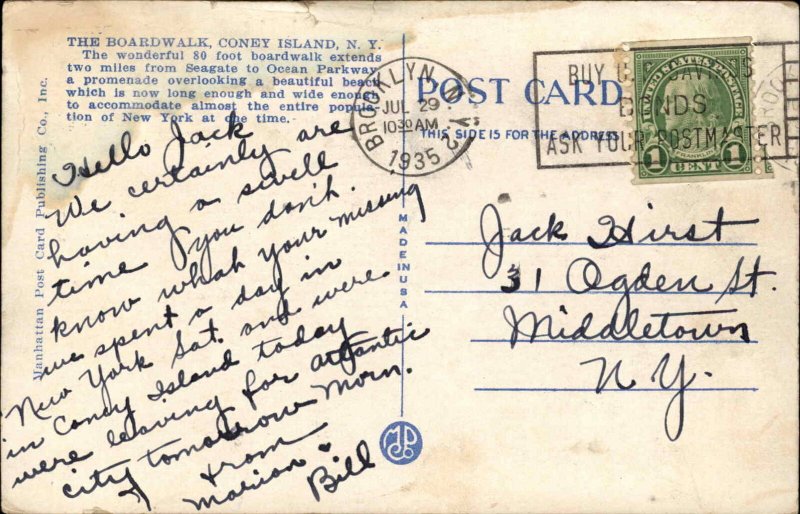 THE BOARDWALK, CONEY ISLAND, N. Y.
The wonderful 80 foot boardwalk extends
two miles from Seagate to Ocean Parkway,
a promenade overlooking a beautiful beach
which is now long enough and wide enough
to accommodate almost the entire popula-
tion of New York at one time.
Manhattan Post Card Publishing Co., Inc.
Hello Jack
We certainly are
having a swell
time & you don't
know what your missing
we spent a day in
New York Sat. and were
in Coney Island today
were leaving for Atlantic
city tomorrow Morn.
from
Marian &
Bill
POST CARD
THIS SIDE IS FOR THE ADDRESS
MADE IN USA
BROOKLYN, N.Y. 2
JUL 29
10 30 AM
1935
BUY U.S. SAVINGS
BONDS
ASK YOUR POSTMASTER
UNITED STATES POSTAGE
FRANKLIN
1 CENT 1
Jack Hirst
31 Ogden St.
Middletown
N.Y.